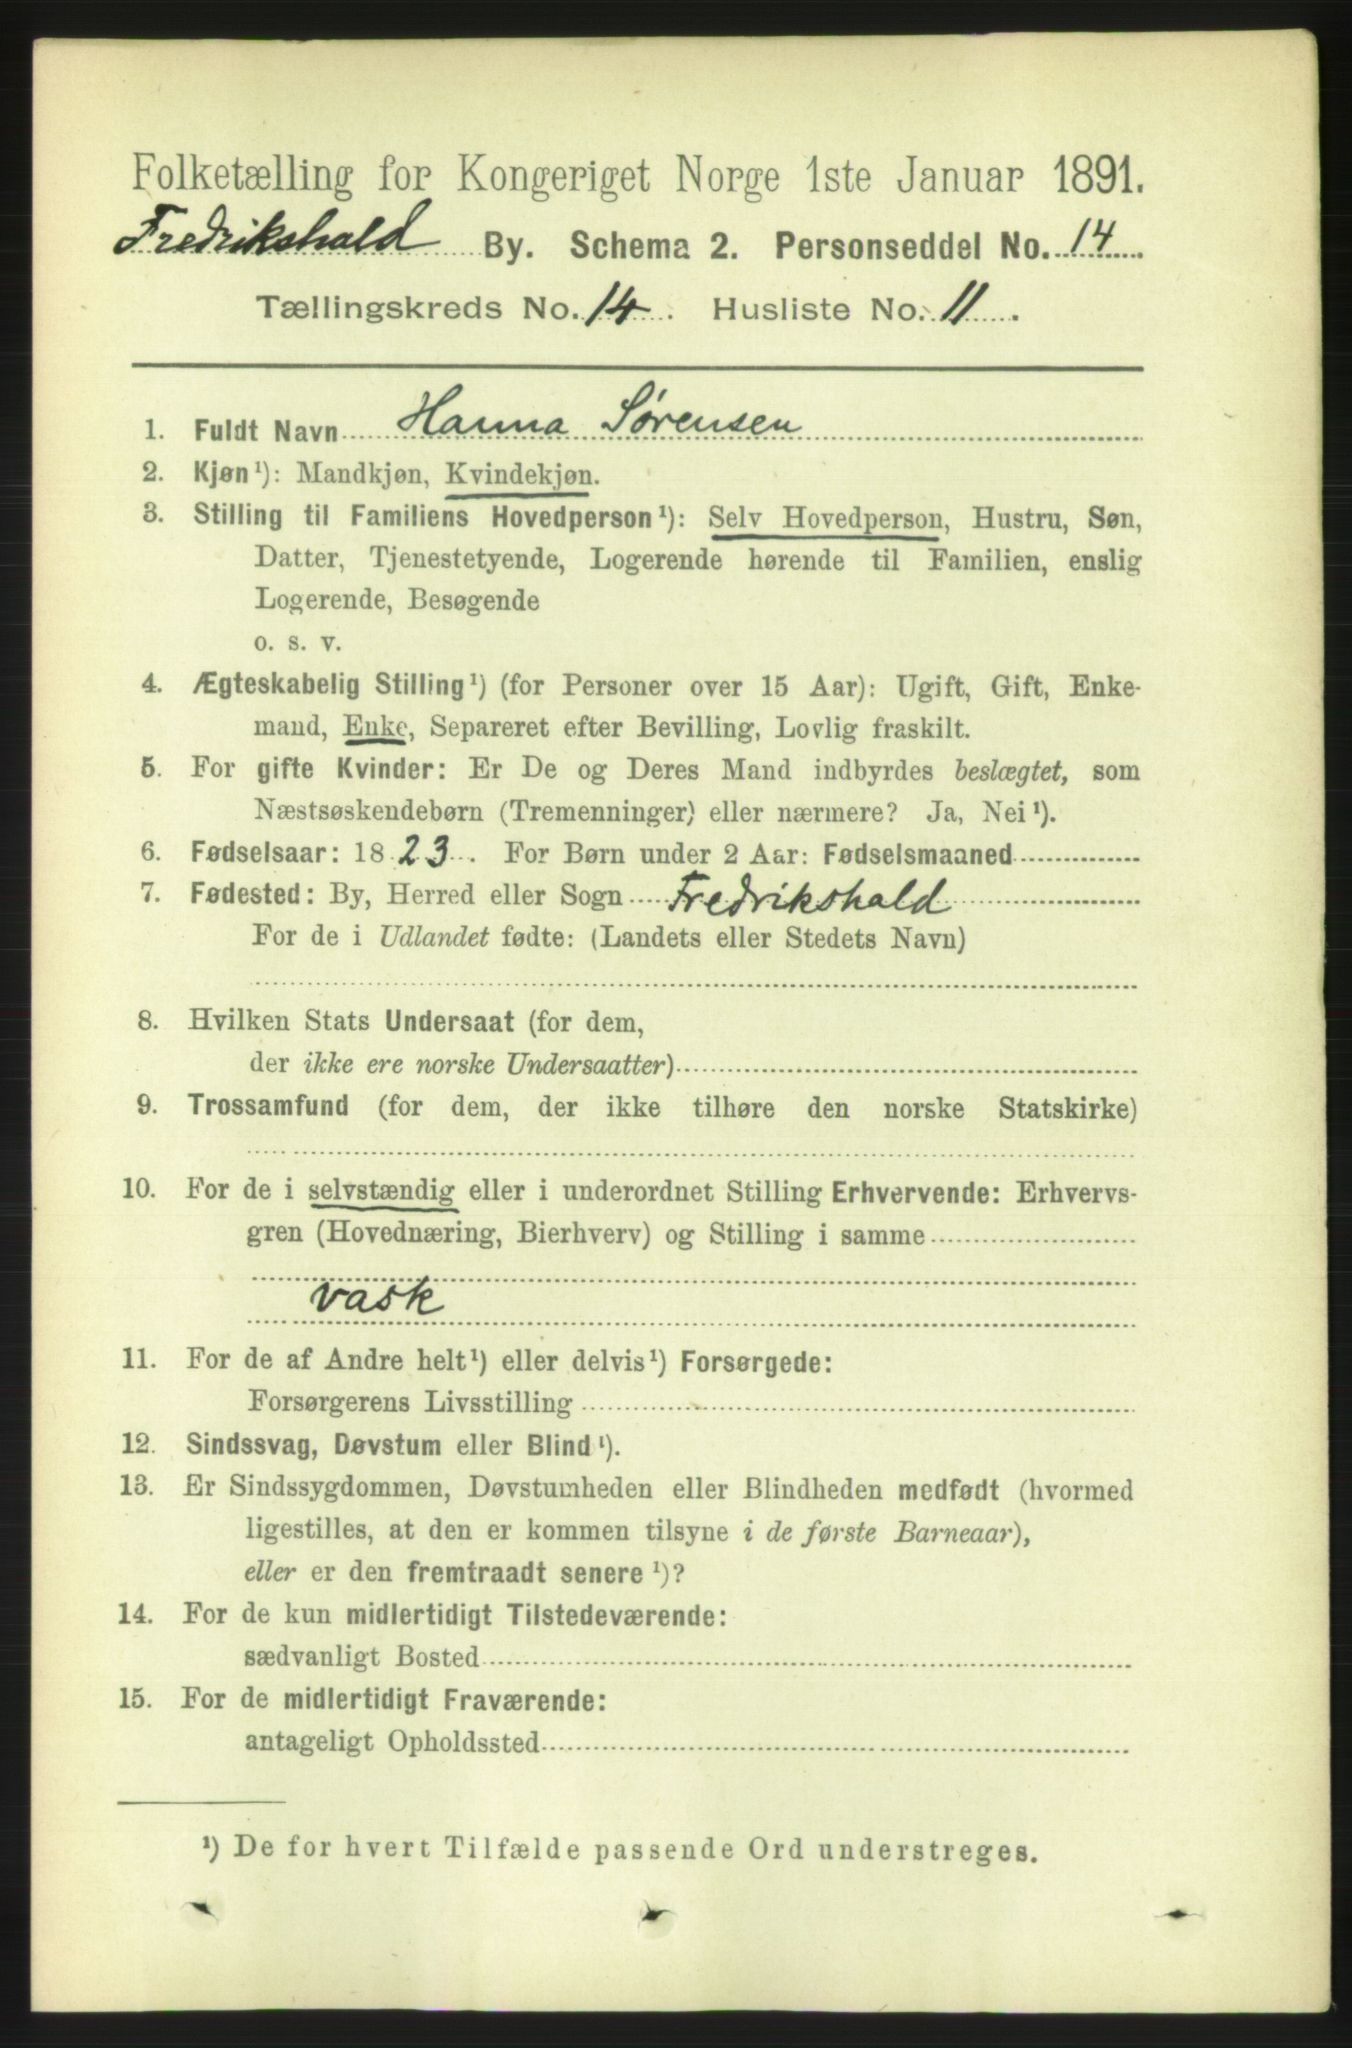 Folketælling for Kongeriget Norge 1ste Januar 1891.
Fredrikshald By. Schema 2. Personseddel No. 14
Tællingskreds No. 14. Husliste No. 11.
1. Fuldt Navn Hanna Sørensen
2. Kjøn¹): Mandkjøn, Kvindekjøn.
3. Stilling til Familiens Hovedperson¹): Selv Hovedperson, Hustru, Søn,
Datter, Tjenestetyende, Logerende hørende til Familien, enslig
Logerende, Besøgende
o. s. v.
4. Ægteskabelig Stilling¹) (for Personer over 15 Aar): Ugift, Gift, Enke-
mand, Enke, Separeret efter Bevilling, Lovlig fraskilt.
5. For gifte Kvinder: Er De og Deres Mand indbyrdes beslægtet, som
Næstsøskendebørn (Tremenninger) eller nærmere? Ja, Nei¹).
6. Fødselsaar: 1823. For Børn under 2 Aar: Fødselsmaaned
7. Fødested: By, Herred eller Sogn Fredrikshald
For de i Udlandet fødte: (Landets eller Stedets Navn)
8. Hvilken Stats Undersaat (for dem,
der ikke ere norske Undersaatter)
9. Trossamfund (for dem, der ikke tilhøre den norske Statskirke)
10. For de i selvstændig eller i underordnet Stilling Erhvervende: Erhvervs-
gren (Hovednæring, Bierhverv) og Stilling i samme
vask
11. For de af Andre helt¹) eller delvis¹) Forsørgede:
Forsørgerens Livsstilling
12. Sindssvag, Døvstum eller Blind¹).
13. Er Sindssygdommen, Døvstumheden eller Blindheden medfødt (hvormed
ligestilles, at den er kommen tilsyne i de første Barneaar),
eller er den fremtraadt senere¹)?
14. For de kun midlertidigt Tilstedeværende:
sædvanligt Bosted
15. For de midlertidigt Fraværende:
antageligt Opholdssted
¹) De for hvert Tilfælde passende Ord understreges.